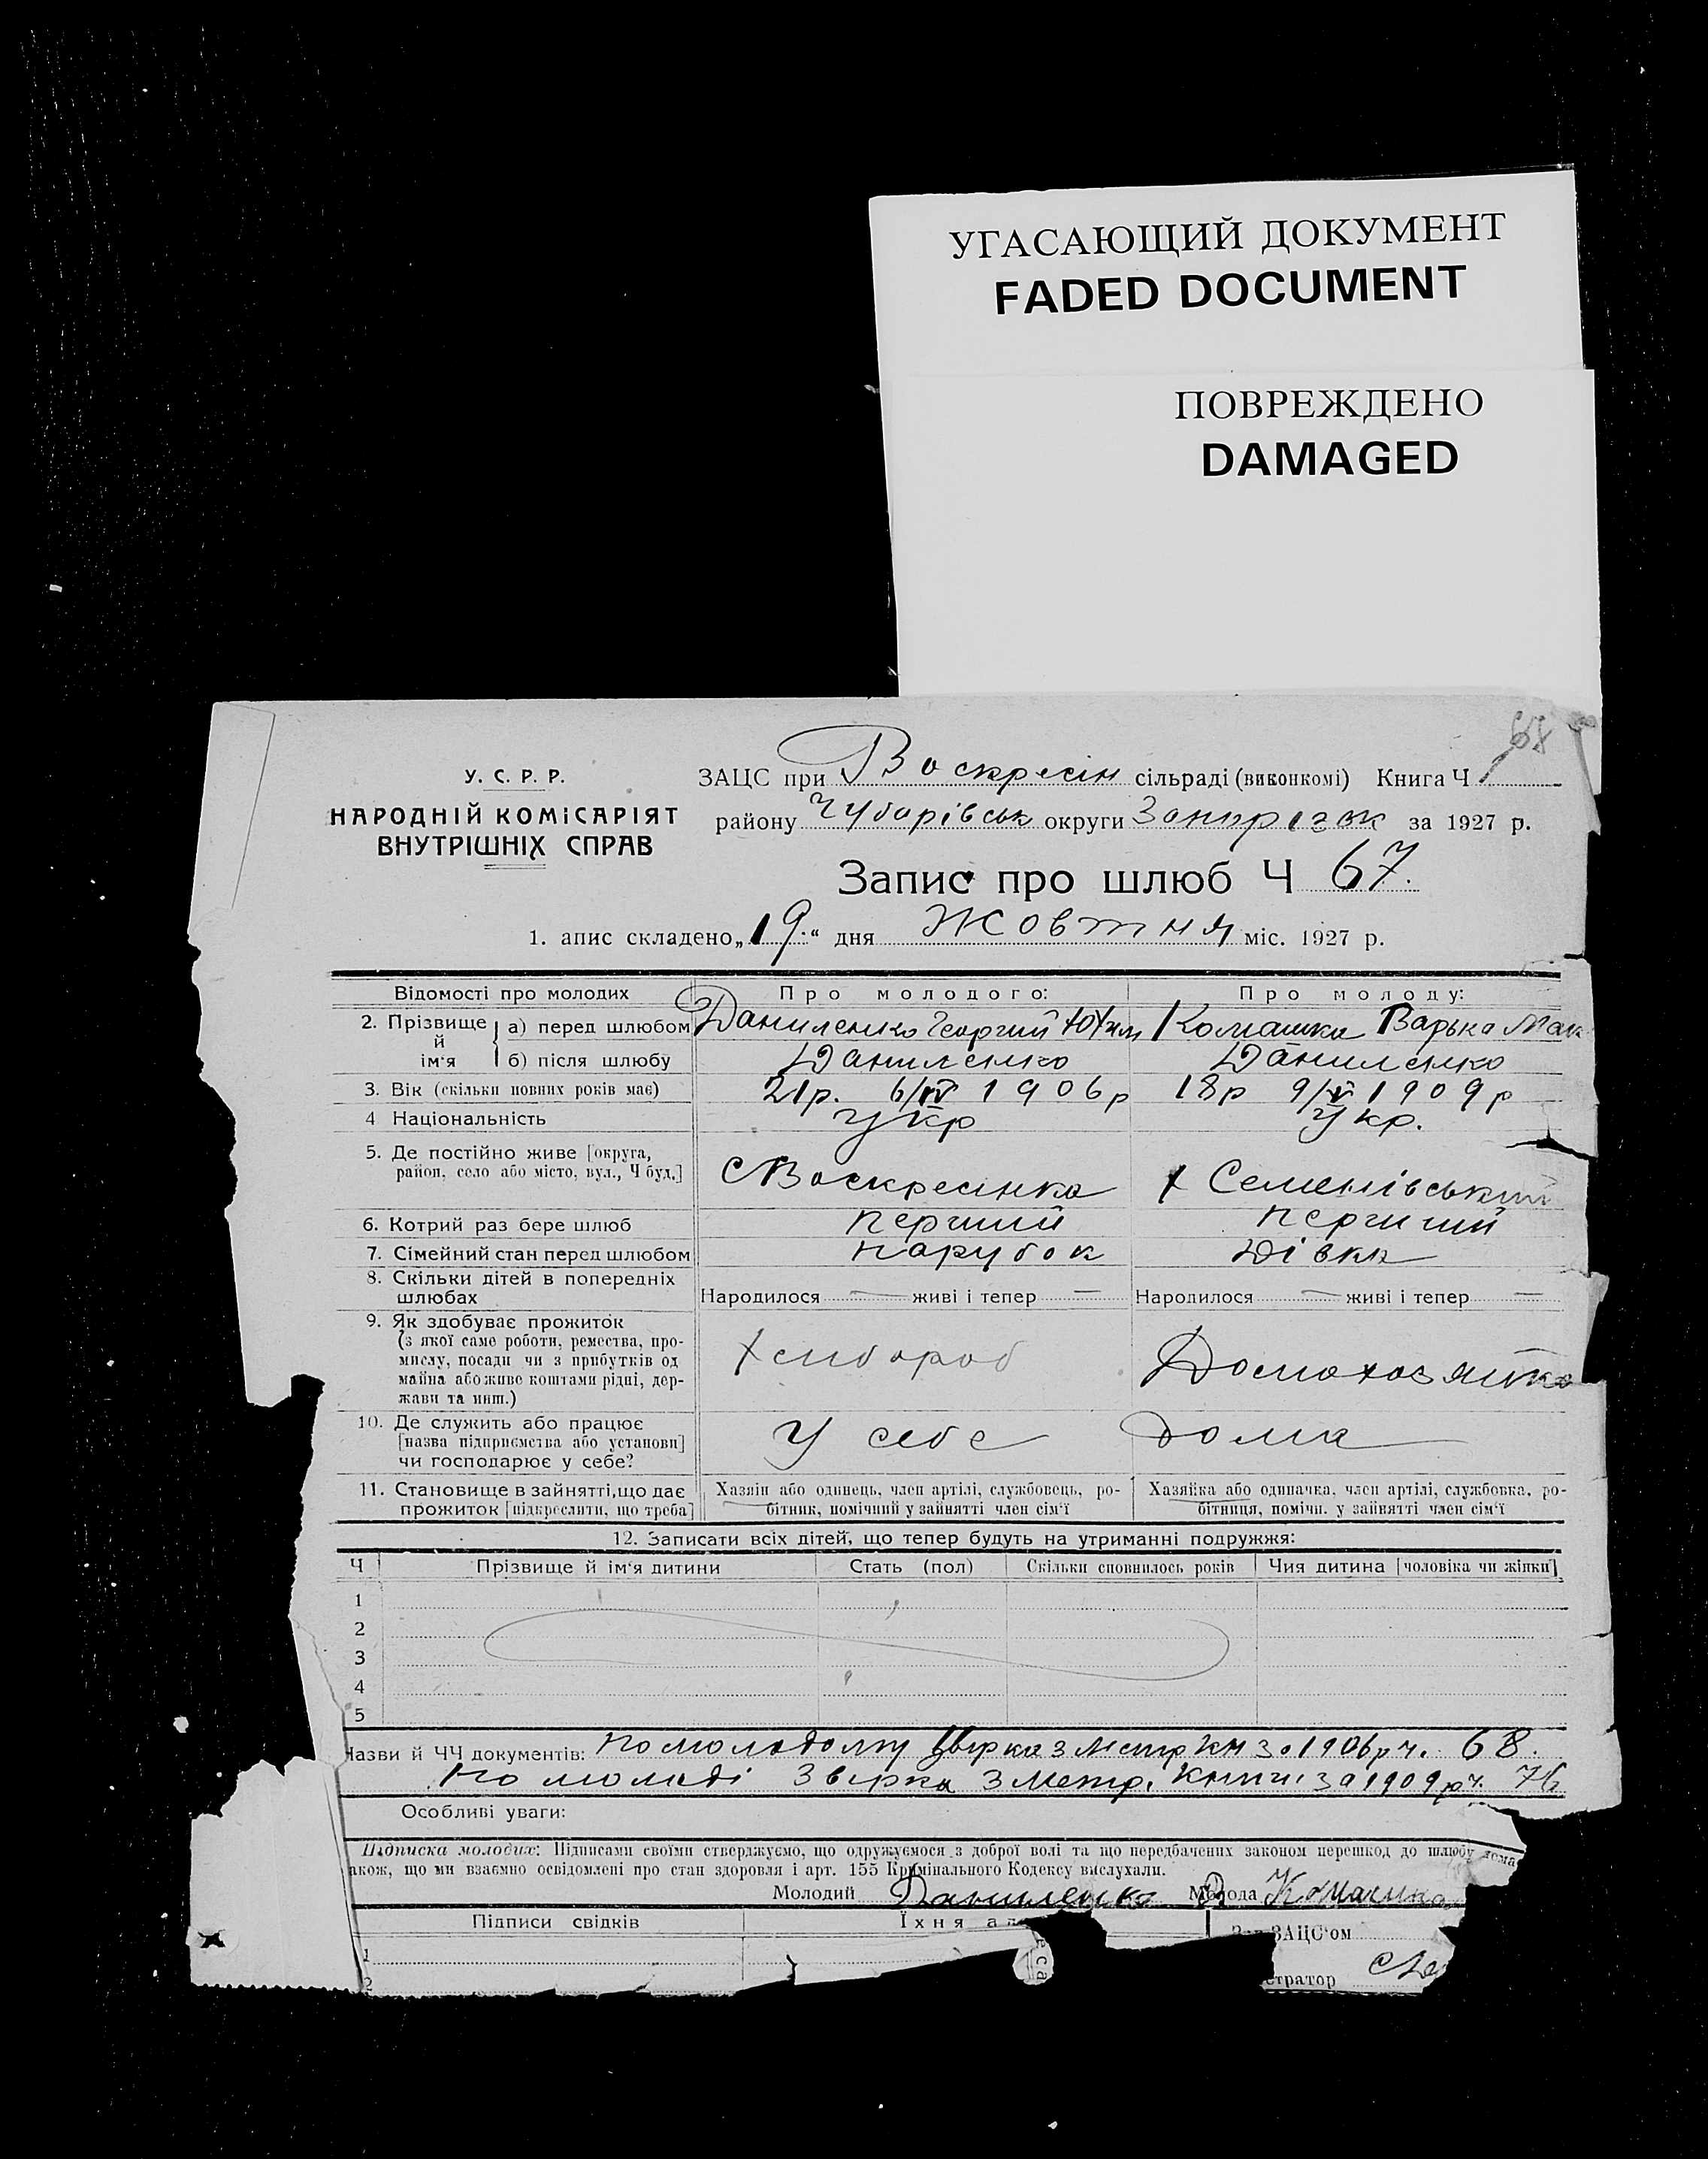 УГАСАЮЩИЙ ДОКУМЕНТ
FADED DOCUMENT
ПОВРЕЖДЕНО
DAMAGED
У. С. Р. Р.
НАРОДНІЙ КОМІСАРІЯТ
ВНУТРІШНІХ СПРАВ
ЗАЦС при Воскресін сільраді (виконкомі) Книга Ч
району Чубарівськ округи Запорізьк за 1927 р.
Запис про шлюб Ч 67.
1. апис складено „19.“ дня Жовтня міс. 1927 р.
Відомості про молодих Про молодого: Про молоду:
2. Прізвище й ім'я а) перед шлюбом Даниленко Георгий Юхим Комашка Варька Мак
б) після шлюбу Даниленко Даниленко
3. Вік (скільки повних років має) 21р. 6/IV 1906р 18р 9/V 1909р
4 Національність Укр Укр.
5. Де постійно живе [округа, район, село або місто, вул., Ч буд.] с Воскресенка х Семенівський
6. Котрий раз бере шлюб перший перший
7. Сімейний стан перед шлюбом парубок дівка
8. Скільки дітей в попередніх шлюбах Народилося — живі і тепер — Народилося — живі і тепер —
9. Як здобуває прожиток
(з якої саме роботи, ремества, про-
мислу, посади чи з прибутків од
майна або живе коштами рідні, дер-
жави та инш.) Хлібороб Домохозяйка
10. Де служить або працює
[назва підприємства або установи]
чи господарює у себе? У себе дома
11. Становище в зайнятті, що дає прожиток [підкреслити, що треба]
Хазяін або одинець, член артілі, службовець, ро-
бітник, помічний у зайнятті член сім'ї
Хазяйка або одиначка, член артілі, службовка, ро-
бітниця, помічн. у зайнятті член сім'ї
12. Записати всіх дітей, що тепер будуть на утриманні подружжя:
Ч Прізвище й ім'я дитини Стать (пол) Скільки сповнилось років Чия дитина [чоловіка чи жінки]
1
2
3
4
5
Назви й ЧЧ документів: По молодому Звірка з Метр Кн за 1906р ч. 68.
По молоді Звірка з Метр. Книги за 1909 р ч.
Особливі уваги:
Підписка молодих: Підписами своїми стверджуємо, що одружуємося з доброї волі та що передбачених законом перешкод до шлюбу нема
акож, що ми взаємно освідомлені про стан здоровля і арт. 155 Кримінального Кодексу вислухали.
Молодий Даниленко Молода Комашка
Підписи свідків Їхня ад еса ЗАЦС'ом
1
2 стратор